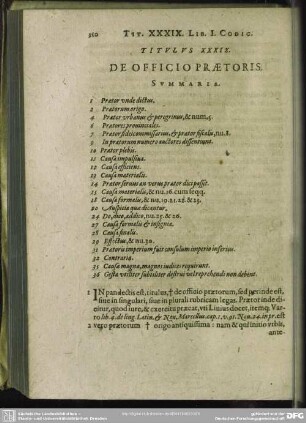 380 TIT. XXXIX. LIB. I. CODIC.
TITVLVS XXXIX.
DE OFFICIO PRÆTORIS.
SVMMARIA.
1 Prætor vnde dictus.
2 Prætorum origo.
4 Prætor vrbanus & peregrinus, & num. 5.
6 Prætores prouinciales.
7 Prætor fideicommissarius, & prætor fiscalis, nu. 8.
9 In prætorum numero auctores dissentiunt.
10 Prætor plebis.
11 Causa impulsiua.
12 Causa efficiens.
13 Causa materialis.
14 Prætor seruus an verus prætor dici possit.
15 Causa materialis, & nu. 16. cum seqq.
18 Causa formalis, & nu. 19. 21. 22. & 23.
20 Auspicia quæ dicantur.
24 Do, dico, addico, nu. 25. & 26.
27 Causa formalis & insignia.
28 Causa finalis.
29 Effectus, & nu. 30.
31 Prætoris imperium fuit consulum imperio inferius.
32 Contraria.
35 Causa magna, magnos iudices requirunt.
36 Gesta viriliter subisciter destrui vel reprehendi non debent.
1 IN pandectis est, titulus, † de officio prætorum, sed perinde est,
siue in singulari, siue in plurali rubricam legas. Prætor inde di-
citur, quod iure, & exercitu præeat, vti Liuius docet, itemq; Var-
ro lib. 4. de ling. Latin. & Non. Marcellus cap. 1. v. 91. Non. 24. in pr. est
2 vero prætorum † origo antiquissima: nam & quĩ initio vrbis,
ante-